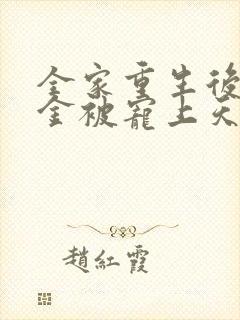 全家重生後
金被寵上天
趙紅霞